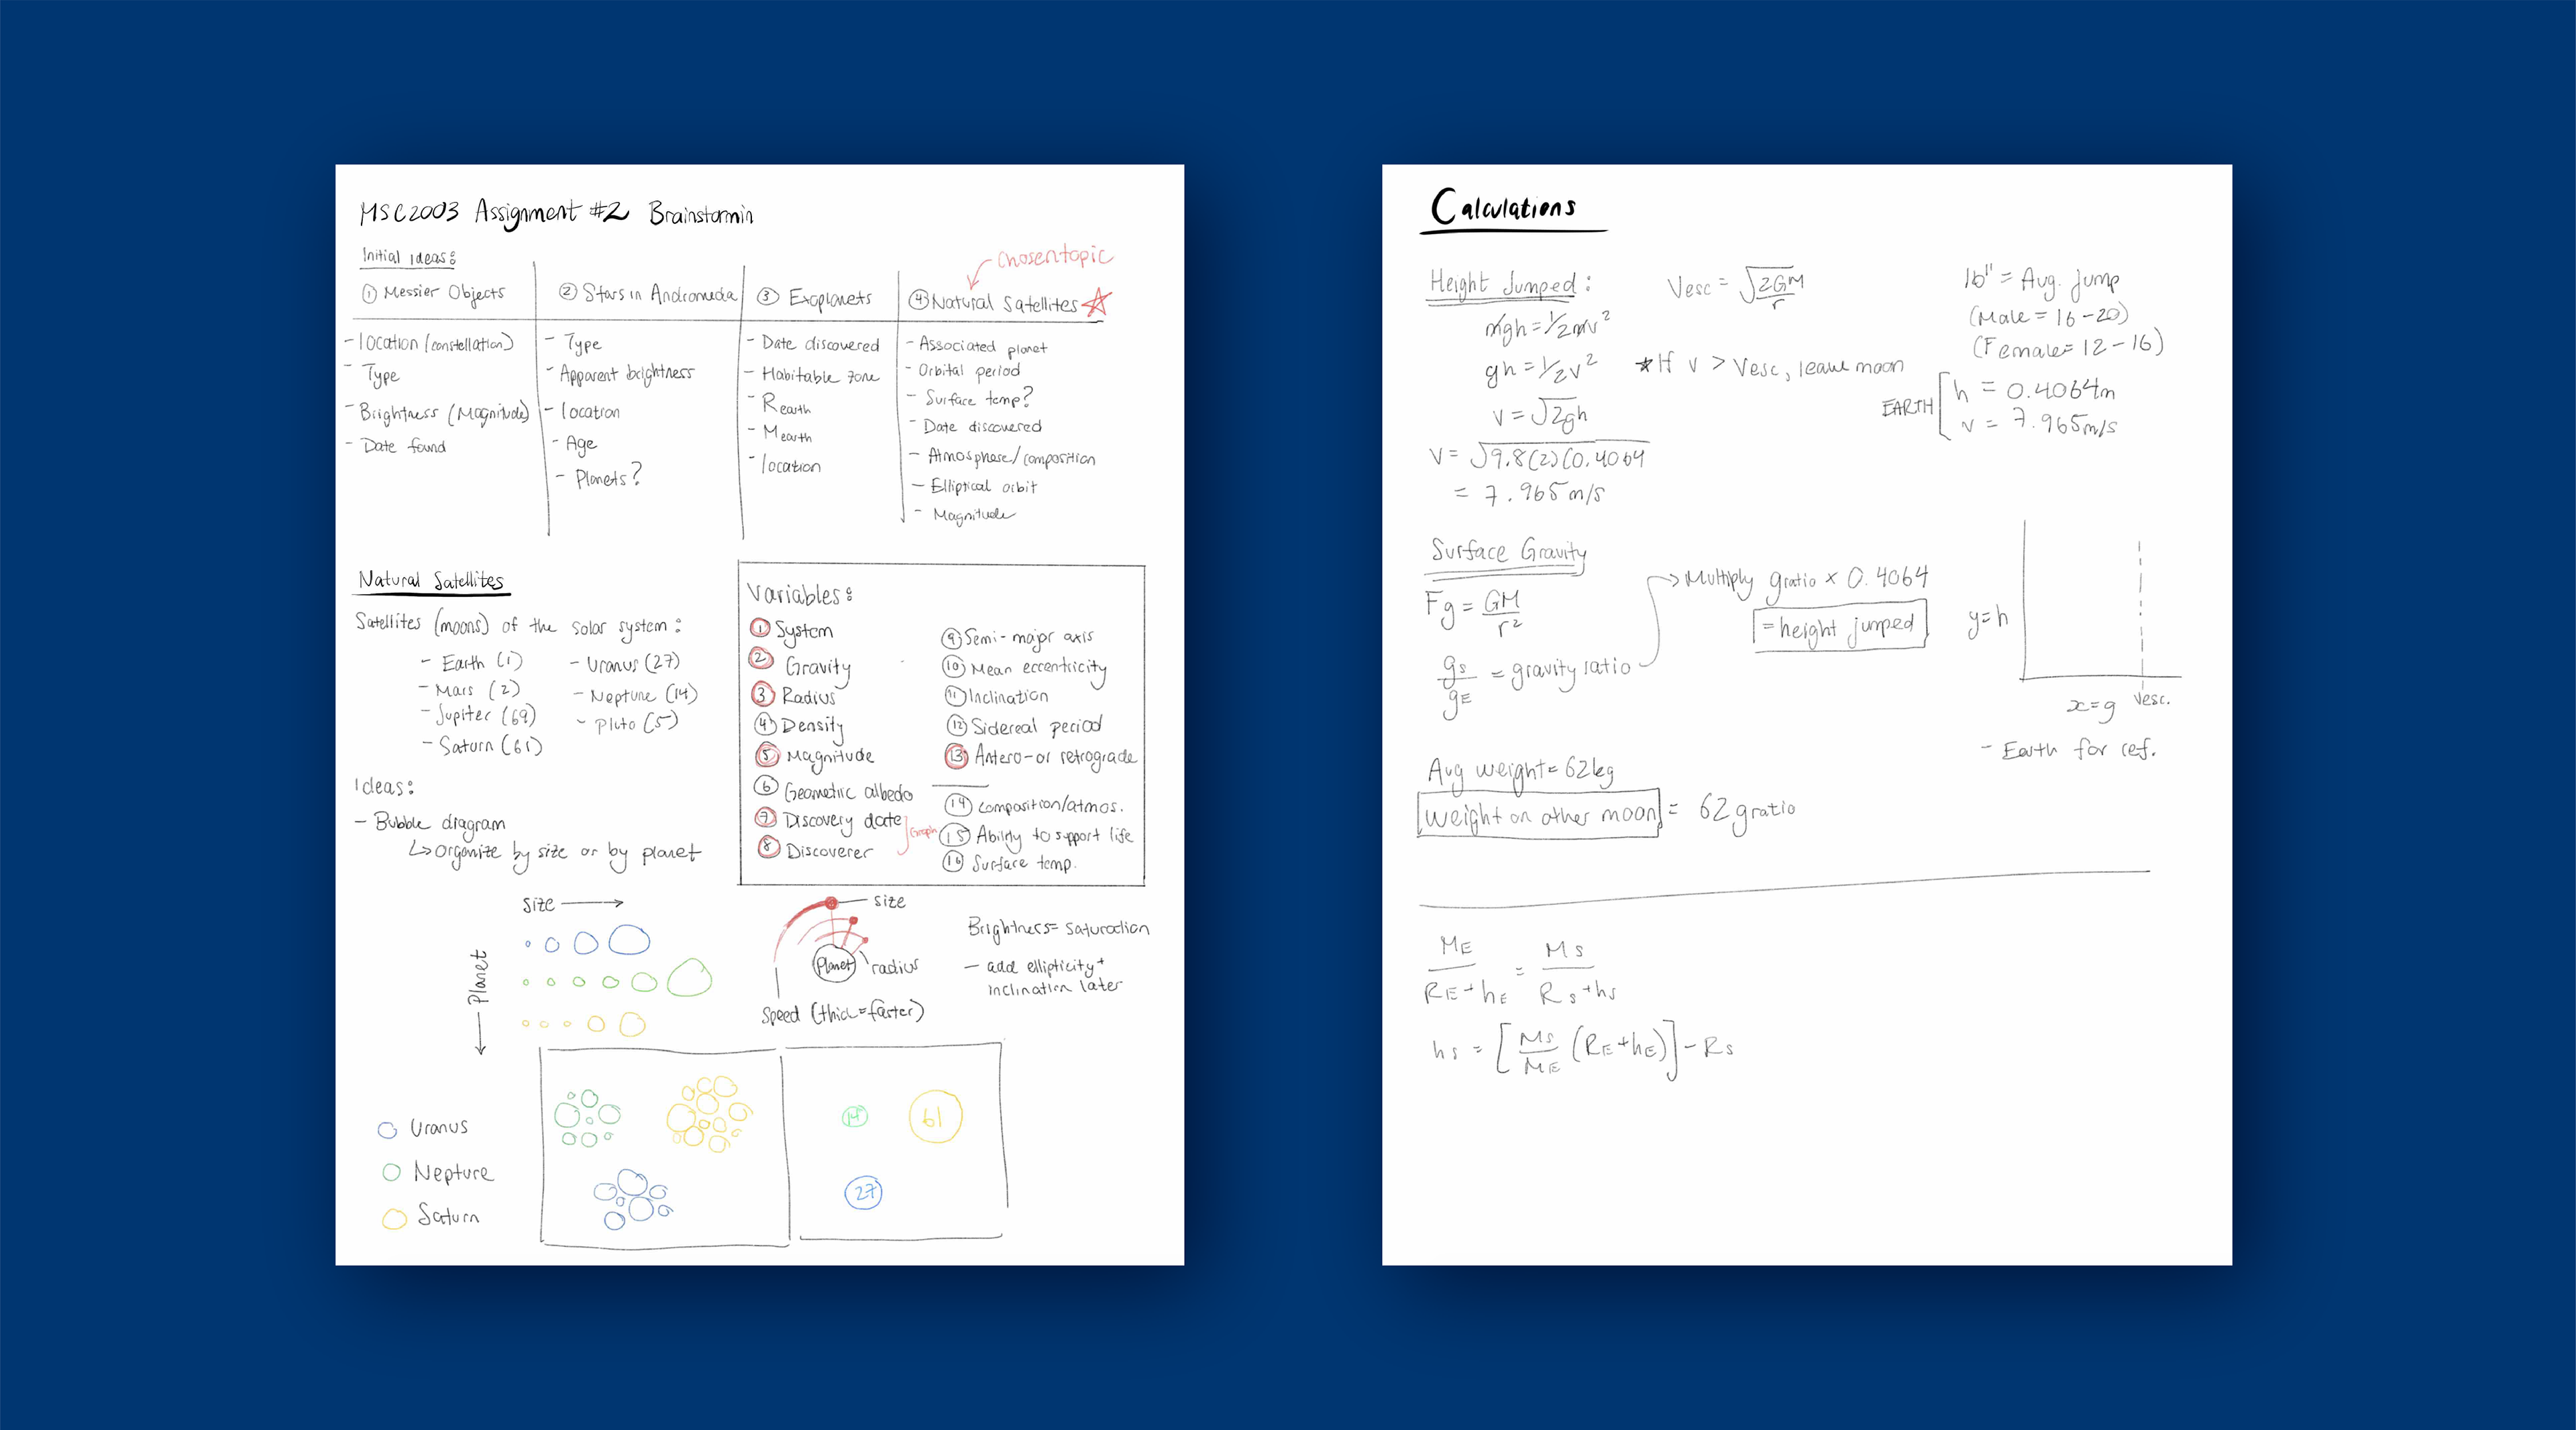 MSC2003 Assignment #2 Brainstormin
Initial ideas:
chosen topic
① Messier Objects
- location (constellation)
- Type
- Brightness (Magnitude)
- Date found
② Stars in Andromeda
- Type
- Apparent brightness
- location
- Age
- Planets?
③ Exoplanets
- Date discovered
- Habitable zone
- Rearth
- Mearth
- location
④ Natural Satellites
- Associated planet
- Orbital period
- Surface temp?
- Date discovered
- Atmosphere/composition
- Elliptical orbit
- Magnitude
Natural Satellites
Satellites (moons) of the solar system:
- Earth (1)
- Mars (2)
- Jupiter (69)
- Saturn (61)
- Uranus (27)
- Neptune (14)
- Pluto (5)
Ideas:
- Bubble diagram
↳ organize by size or by planet
Variables:
① System
② Gravity
③ Radius
④ Density
⑤ Magnitude
⑥ Geometric albedo
⑦ Discovery date
⑧ Discoverer
Graph
⑨ Semi-major axis
⑩ Mean eccentricity
⑪ Inclination
⑫ Sidereal period
⑬ Antero- or retrograde
⑭ composition/atmos.
⑮ Ability to support life
⑯ Surface temp.
Size →
Planet
size
Planet
radius
Speed (thick=faster)
Brightness= saturation
- add ellipticity +
inclination later
Uranus
Nepture
Saturn
14
61
27
Calculations
Height Jumped:
mgh = 1/2mv²
gh = 1/2v²
v = √2gh
v = √9.8(2)(0.4064
= 7.965m/s
Vesc = √2GM/r
*If v > Vesc, leave moon
16" = Avg. jump
(Male = 16-20)
(Female= 12-16)
EARTH
h = 0.4064m
v = 7.965m/s
Surface Gravity
Fg = GM/r²
gs/gE = gravity ratio
→ Multiply gratio × 0.4064
= height jumped
y=h
x=g
Vesc.
- Earth for ref.
Avg weight= 62kg
weight on other moon = 62 gratio
ME/RE+hE = Ms/Rs+hs
hs = [Ms/ME (RE+hE)] - Rs